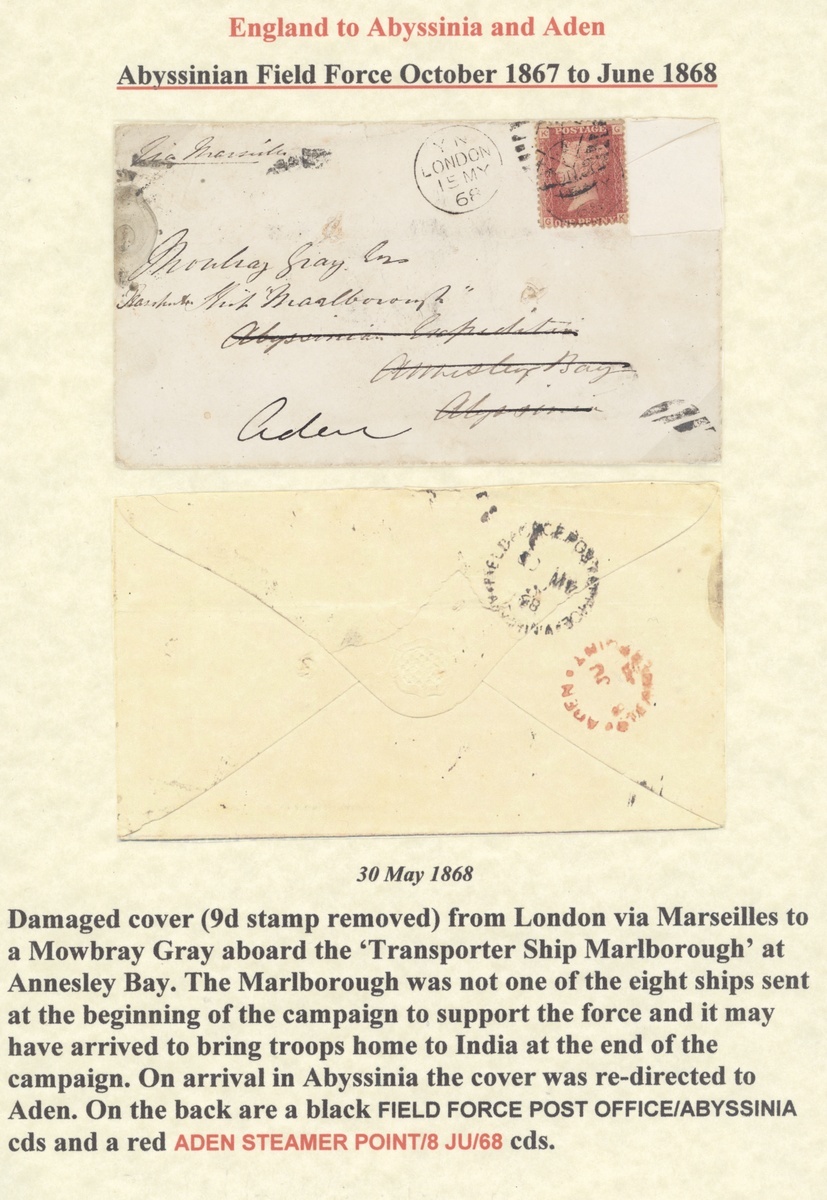 England to Abyssinia and Aden
Abyssinian Field Force October 1867 to June 1868
Via Marseilles
Y N
LONDON
15 MY
68
POSTAGE
ONE PENNY
Mowbray Gray Esq
Ship "Marlborough"
Abyssinian Expedition
Annesley Bay
Abyssinia
Aden
FIELD FORCE POST OFFICE
MY
68
ADEN
30 May 1868
Damaged cover (9d stamp removed) from London via Marseilles to
a Mowbray Gray aboard the ‘Transporter Ship Marlborough’ at
Annesley Bay. The Marlborough was not one of the eight ships sent
at the beginning of the campaign to support the force and it may
have arrived to bring troops home to India at the end of the
campaign. On arrival in Abyssinia the cover was re-directed to
Aden. On the back are a black FIELD FORCE POST OFFICE/ABYSSINIA
cds and a red ADEN STEAMER POINT/8 JU/68 cds.